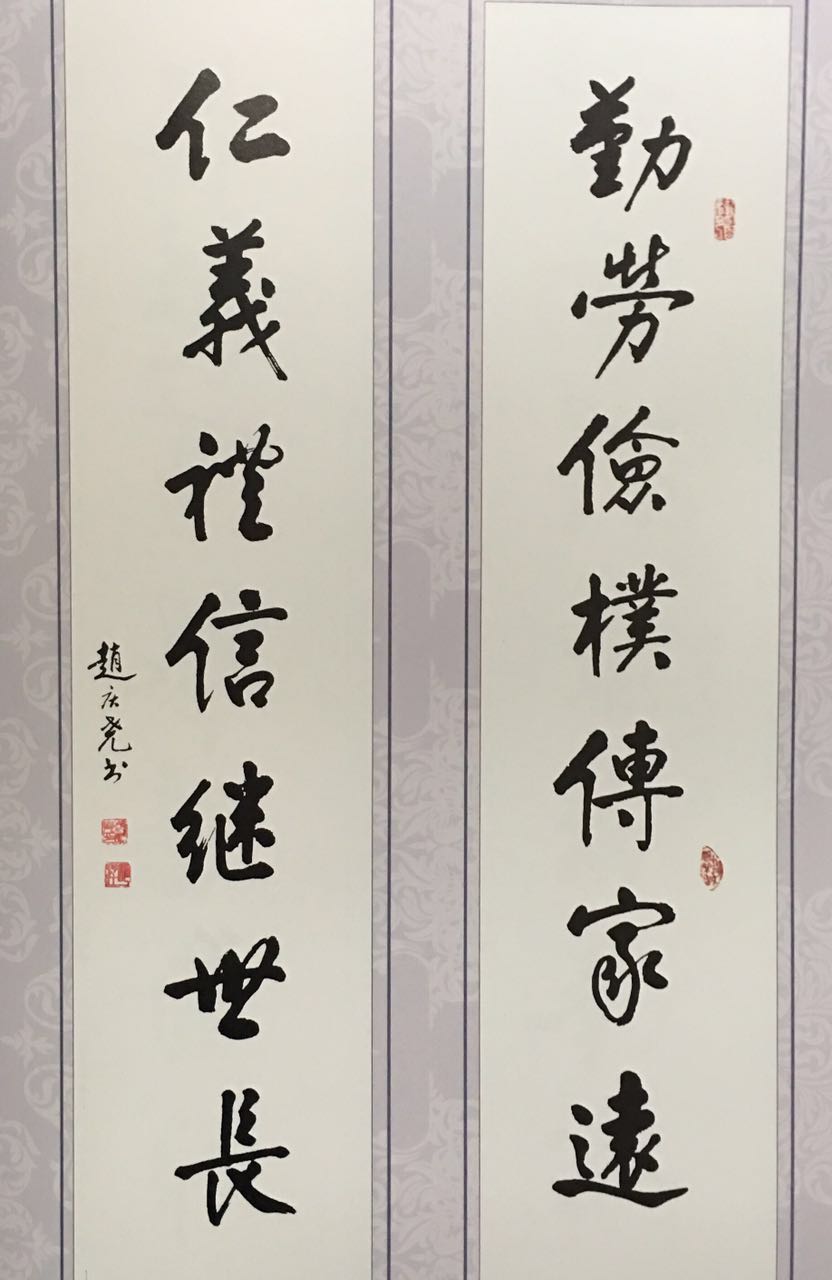 勤勞儉樸傳家遠
仁義禮信继世長
趙庆堯书